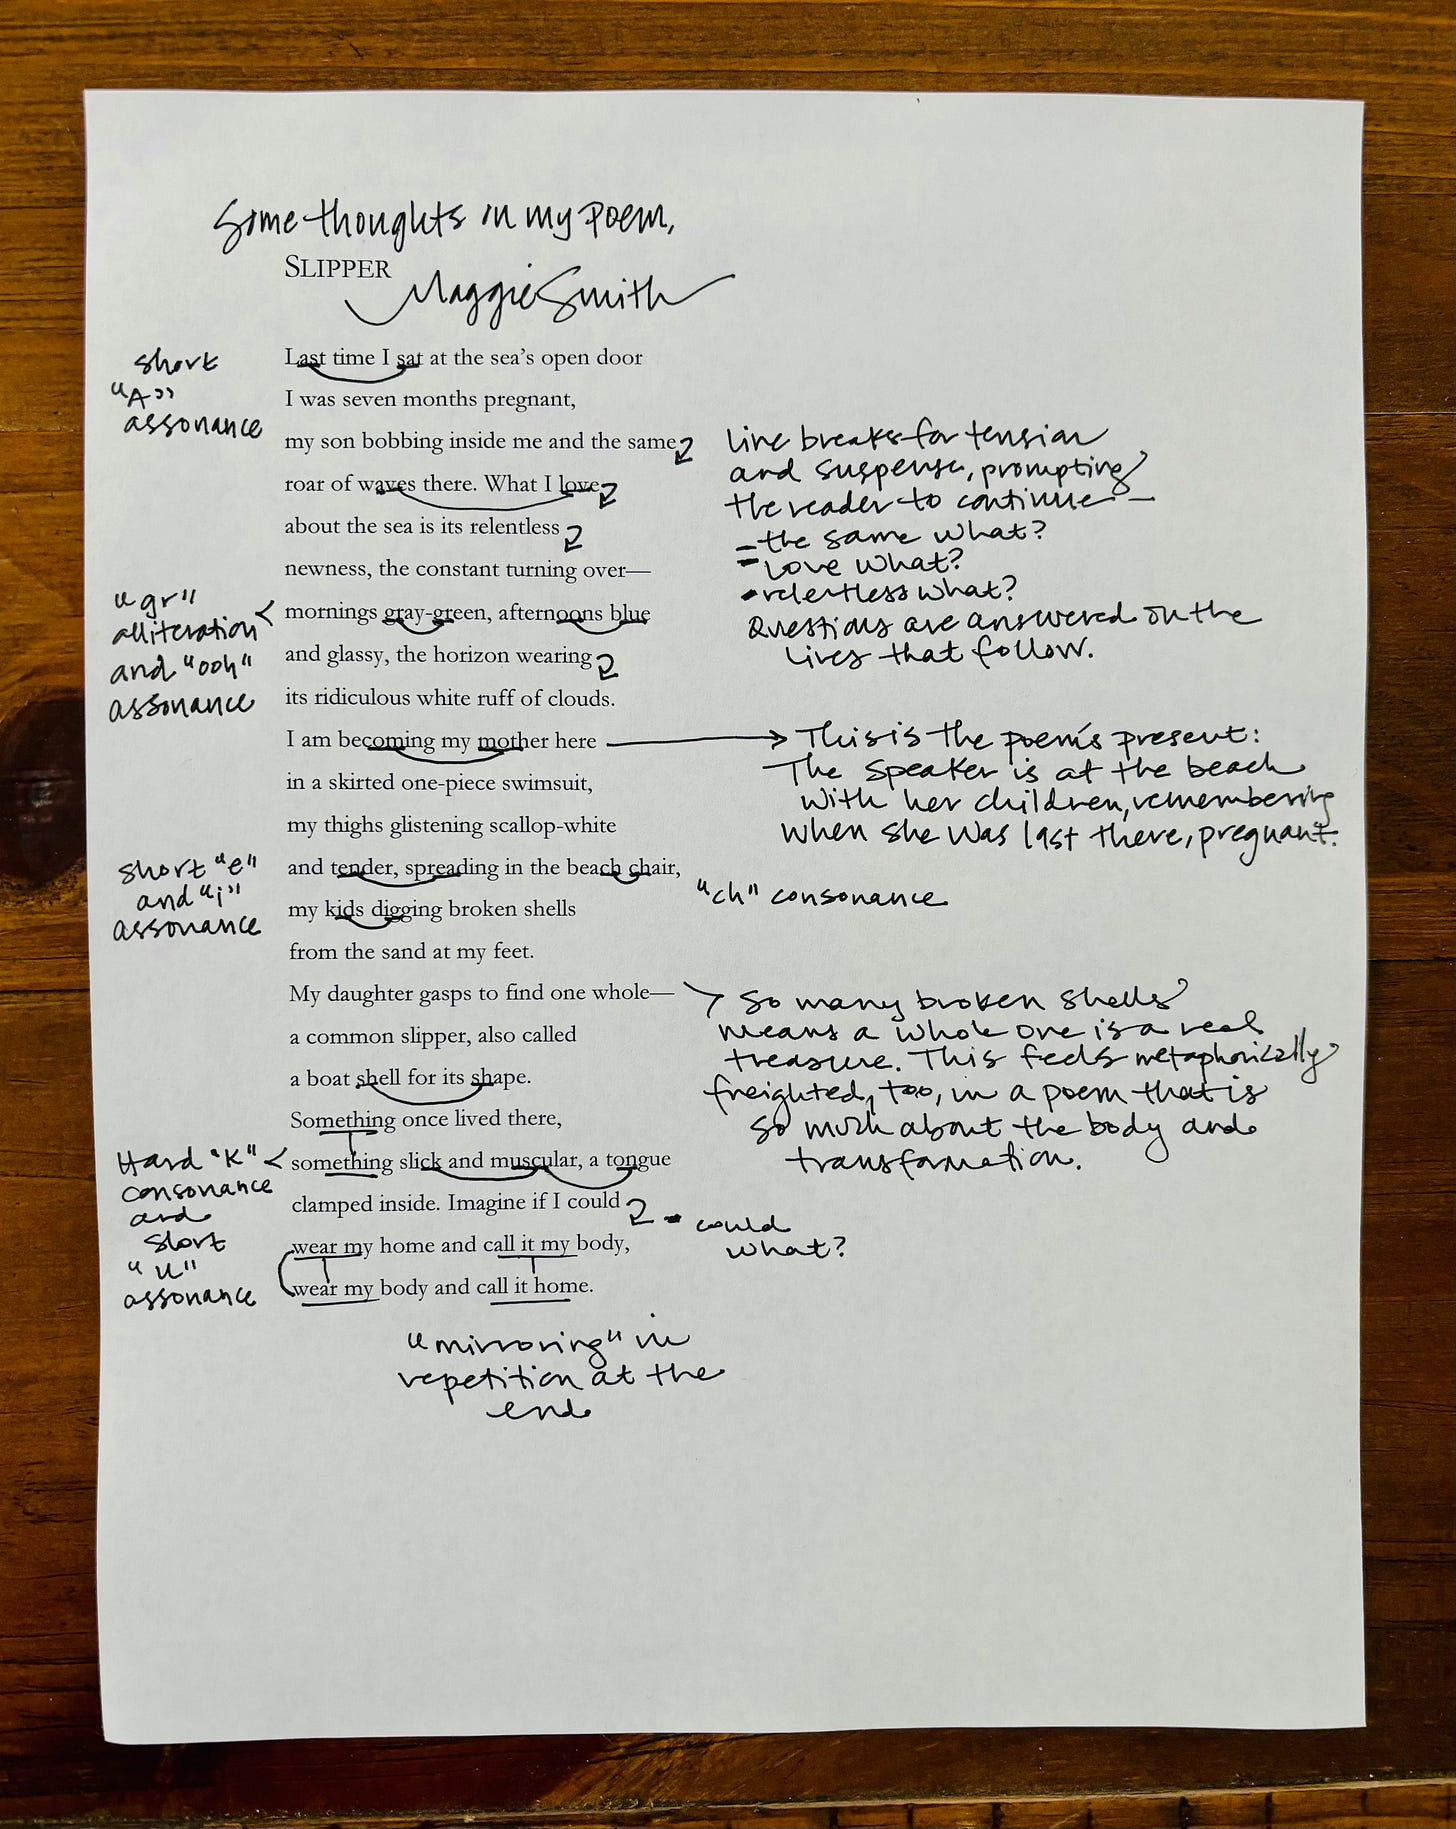 Some thoughts on my poem,
SLIPPER
Maggie Smith
short
"A"
assonance
Last time I sat at the sea's open door
I was seven months pregnant,
my son bobbing inside me and the same
roar of waves there. What I love
about the sea is its relentless
newness, the constant turning over—
line breaks for tension
and suspense, prompting
the reader to continue—
- the same what?
- love what?
- relentless what?
Questions are answered on the
lines that follow.
"gr"
alliteration
and "ooh"
assonance
mornings gray-green, afternoons blue
and glassy, the horizon wearing
its ridiculous white ruff of clouds.
I am becoming my mother here
in a skirted one-piece swimsuit,
my thighs glistening scallop-white
This is the poem's present:
The speaker is at the beach
with her children, remembering
when she was last there, pregnant.
short "e"
and "i"
assonance
and tender, spreading in the beach chair,
my kids digging broken shells
from the sand at my feet.
"ch" consonance
My daughter gasps to find one whole—
a common slipper, also called
a boat shell for its shape.
Something once lived there,
so many broken shells
means a whole one is a real
treasure. This feels metaphorically
freighted, too, in a poem that is
so much about the body and
transformation.
Hard "K"
consonance
and
short
"u"
assonance
something slick and muscular, a tongue
clamped inside. Imagine if I could
wear my home and call it my body,
wear my body and call it home.
- could
what?
"mirroring" in
repetition at the
end